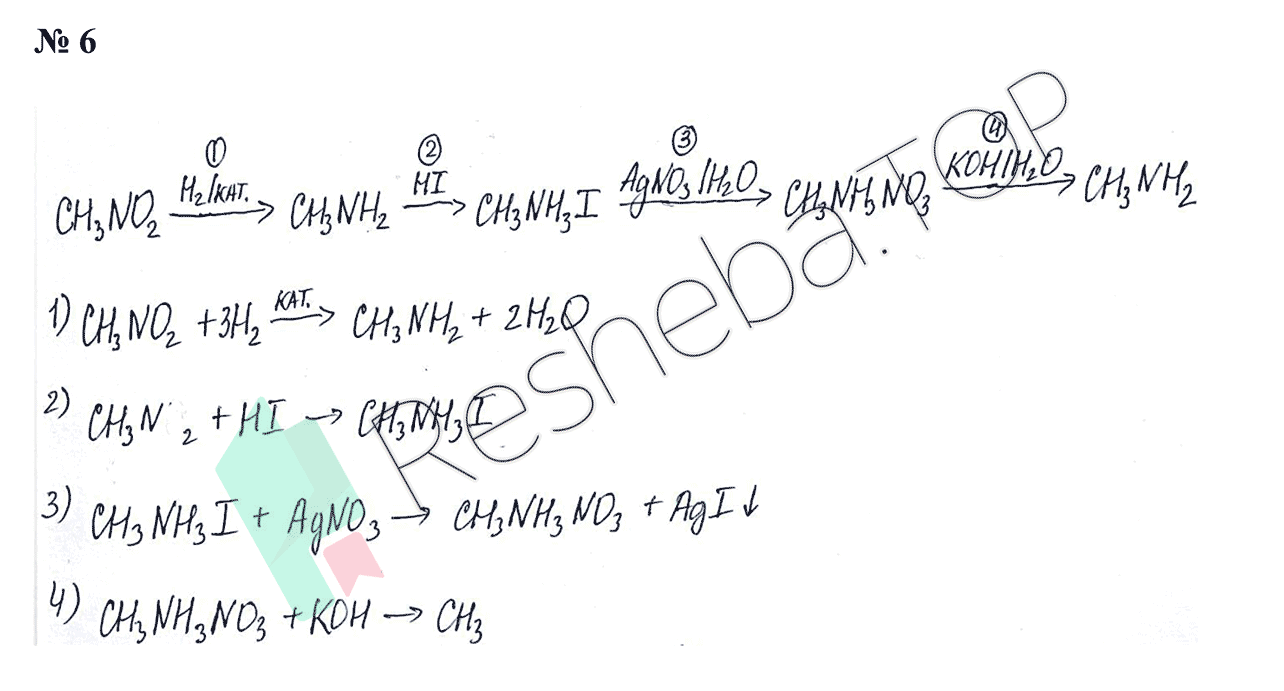 № 6
① ② ③ ④
CH₃NO₂ —H₂/КАТ.→ CH₃NH₂ —HI→ CH₃NH₃I —AgNO₃/H₂O→ CH₃NH₃NO₃ —KOH/H₂O→ CH₃NH₂
1) CH₃NO₂ + 3H₂ —КАТ.→ CH₃NH₂ + 2H₂O
2) CH₃N ₂ + HI → CH₃NH₃I
3) CH₃NH₃I + AgNO₃ → CH₃NH₃NO₃ + AgI↓
4) CH₃NH₃NO₃ + KOH → CH₃
Resheba.TOP